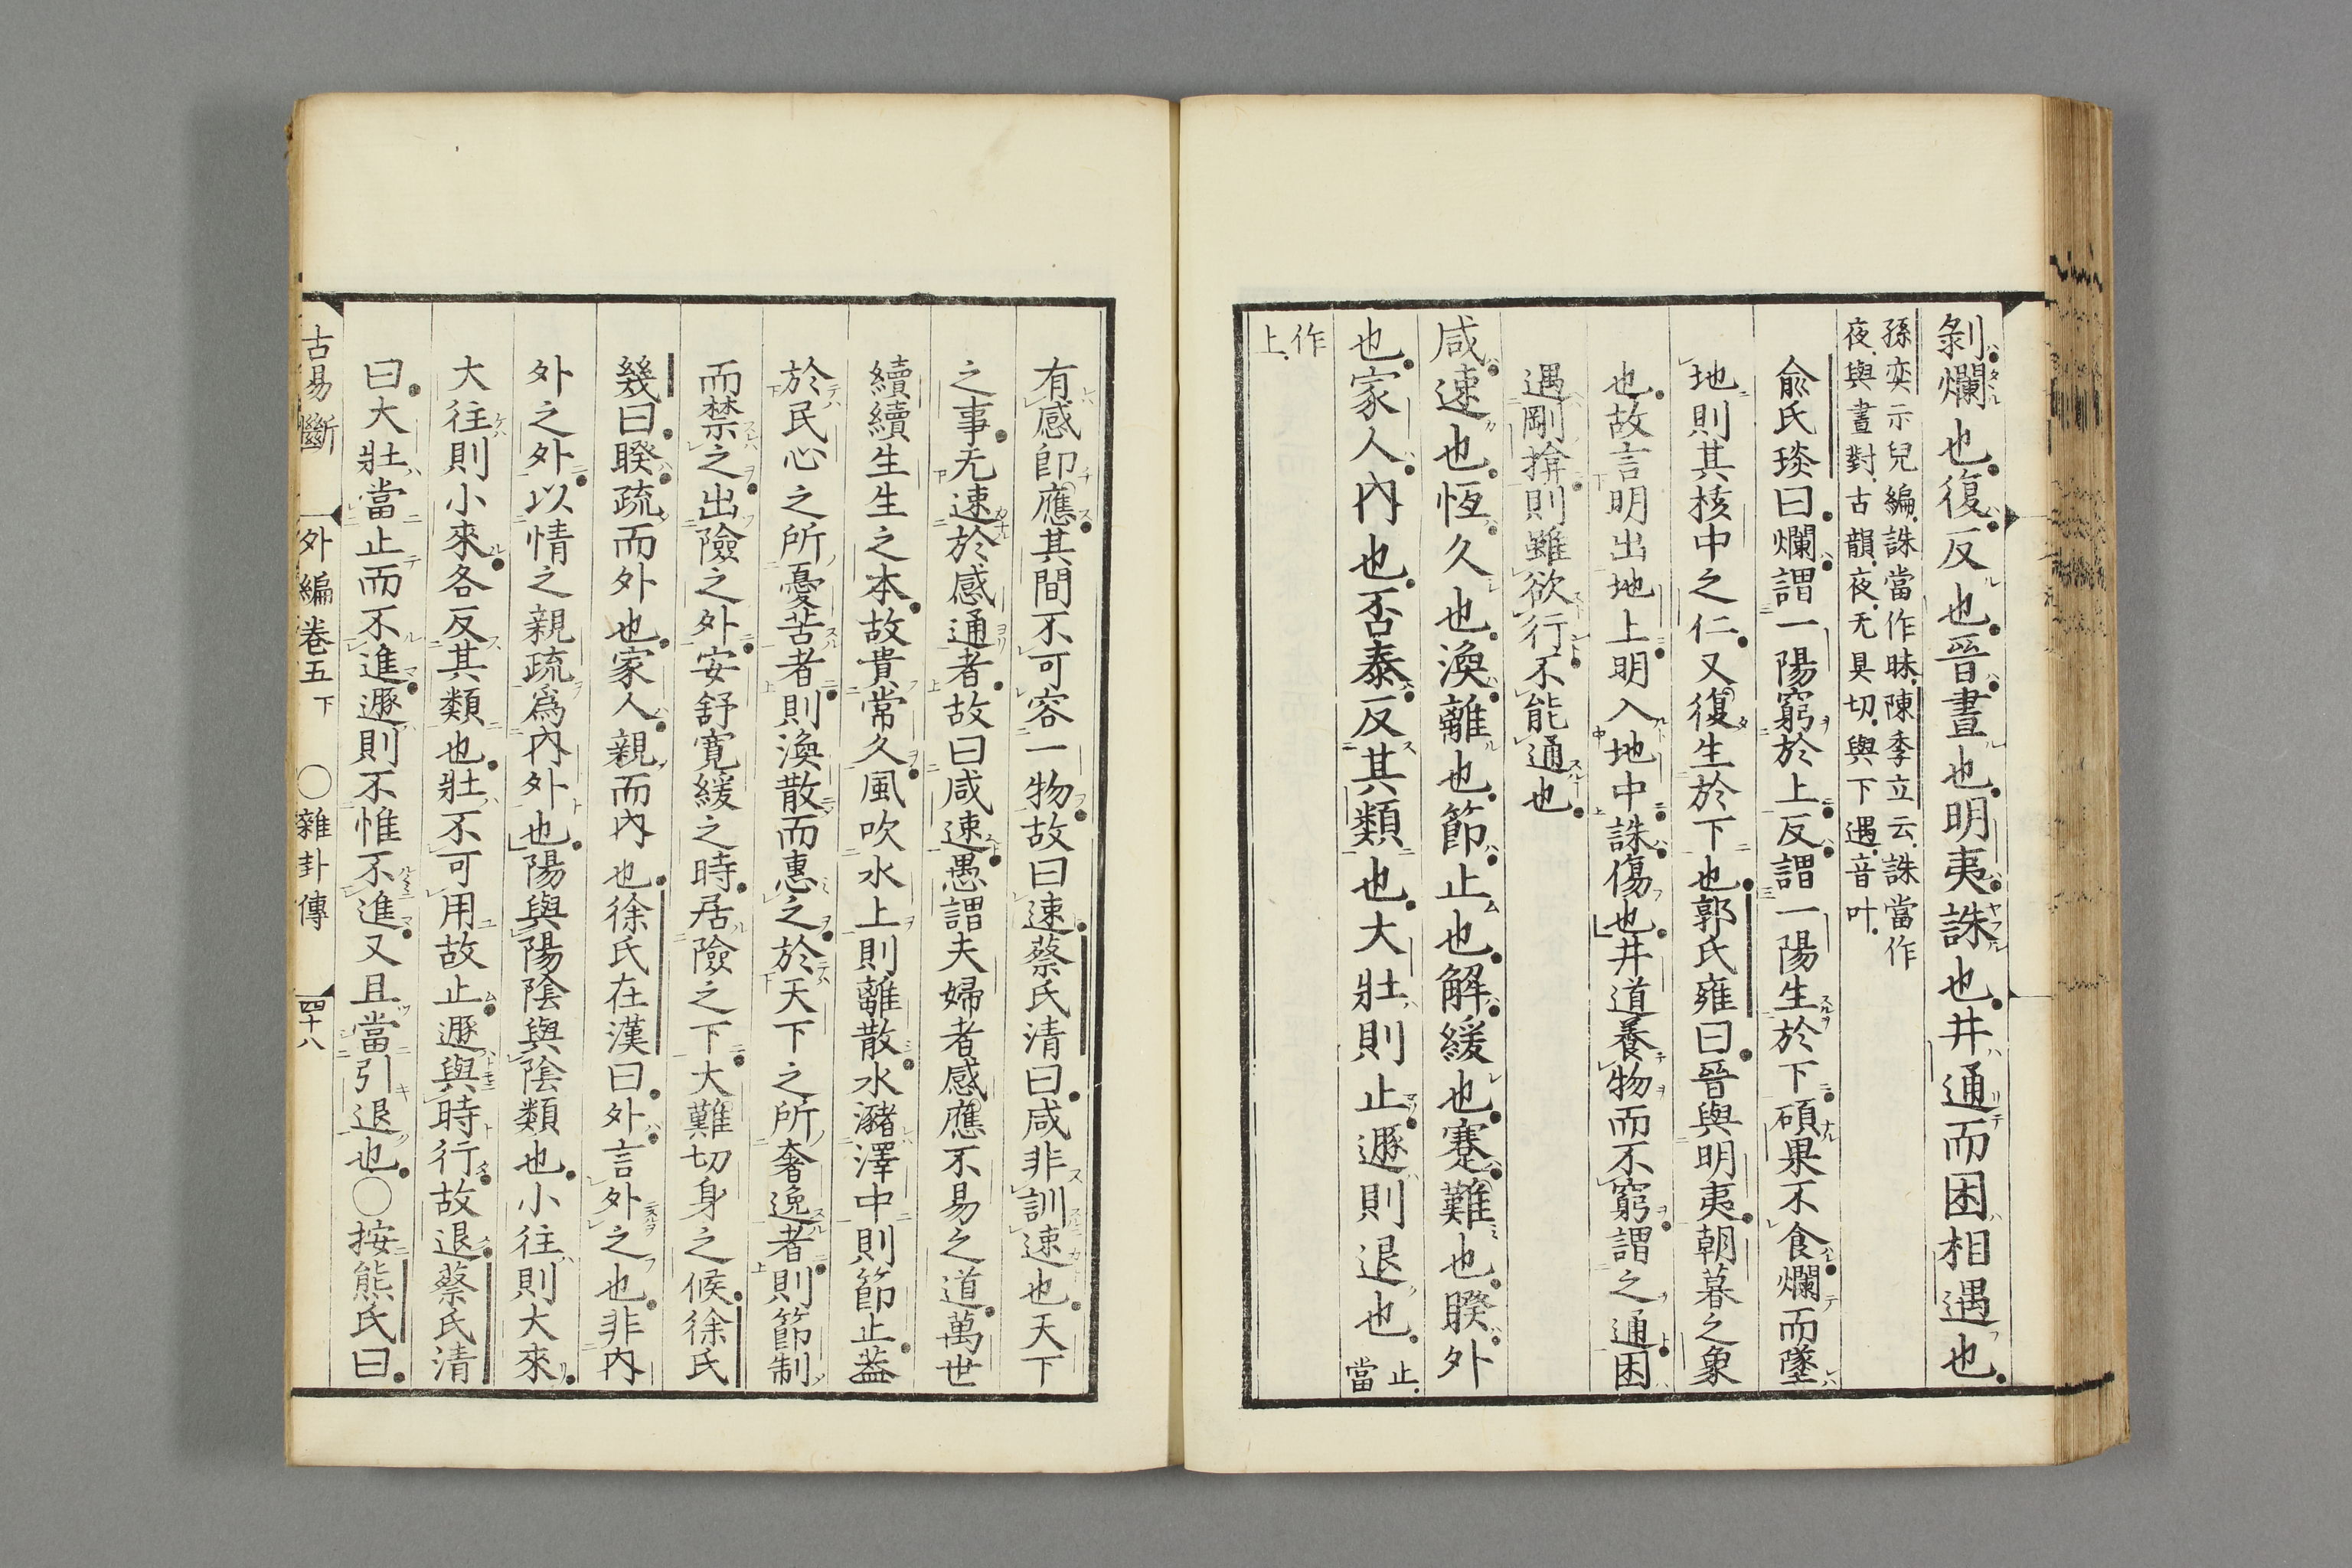 剝爛也復反也晉晝也明夷誅也井通而困相遇也
孫奕示兒編誅當作昧陳季立云誅當作
夜與晝對古韻夜无具切與下遇音叶
兪氏琰曰爛謂一陽窮於上反謂一陽生於下碩果不食爛而墜
地則其核中之仁又復生於下也郭氏雍曰晉與明夷朝暮之象
也故言明出地上明入地中誅傷也井道養物而不窮謂之通困
遇剛揜則雖欲行不能通也
咸速也恆久也渙離也節止也解緩也蹇難也睽外
也家人內也否泰反其類也大壯則止遯則退也止當
作上
有感卽應其間不可容一物故曰速蔡氏清曰咸非訓速也天下
之事无速於感通者故曰咸速愚謂夫婦者感應不易之道萬世
續續生生之本故貴常久風吹水上則離散水瀦澤中則節止葢
於民心之所憂苦者則渙散而惠之於天下之所奢逸者則節制
而禁之出險之外安舒寬緩之時居險之下大難切身之候徐氏
幾曰睽疏而外也家人親而內也徐氏在漢曰外言外之也非內
外之外以情之親疏爲內外也陽與陽陰與陰類也小往則大來
大往則小來各反其類也壯不可用故止遯與時行故退蔡氏清
曰大壯當止而不進遯則不惟不進又且當引退也〇按熊氏曰
古易斷 外編卷五下 〇雜卦傳 四十八